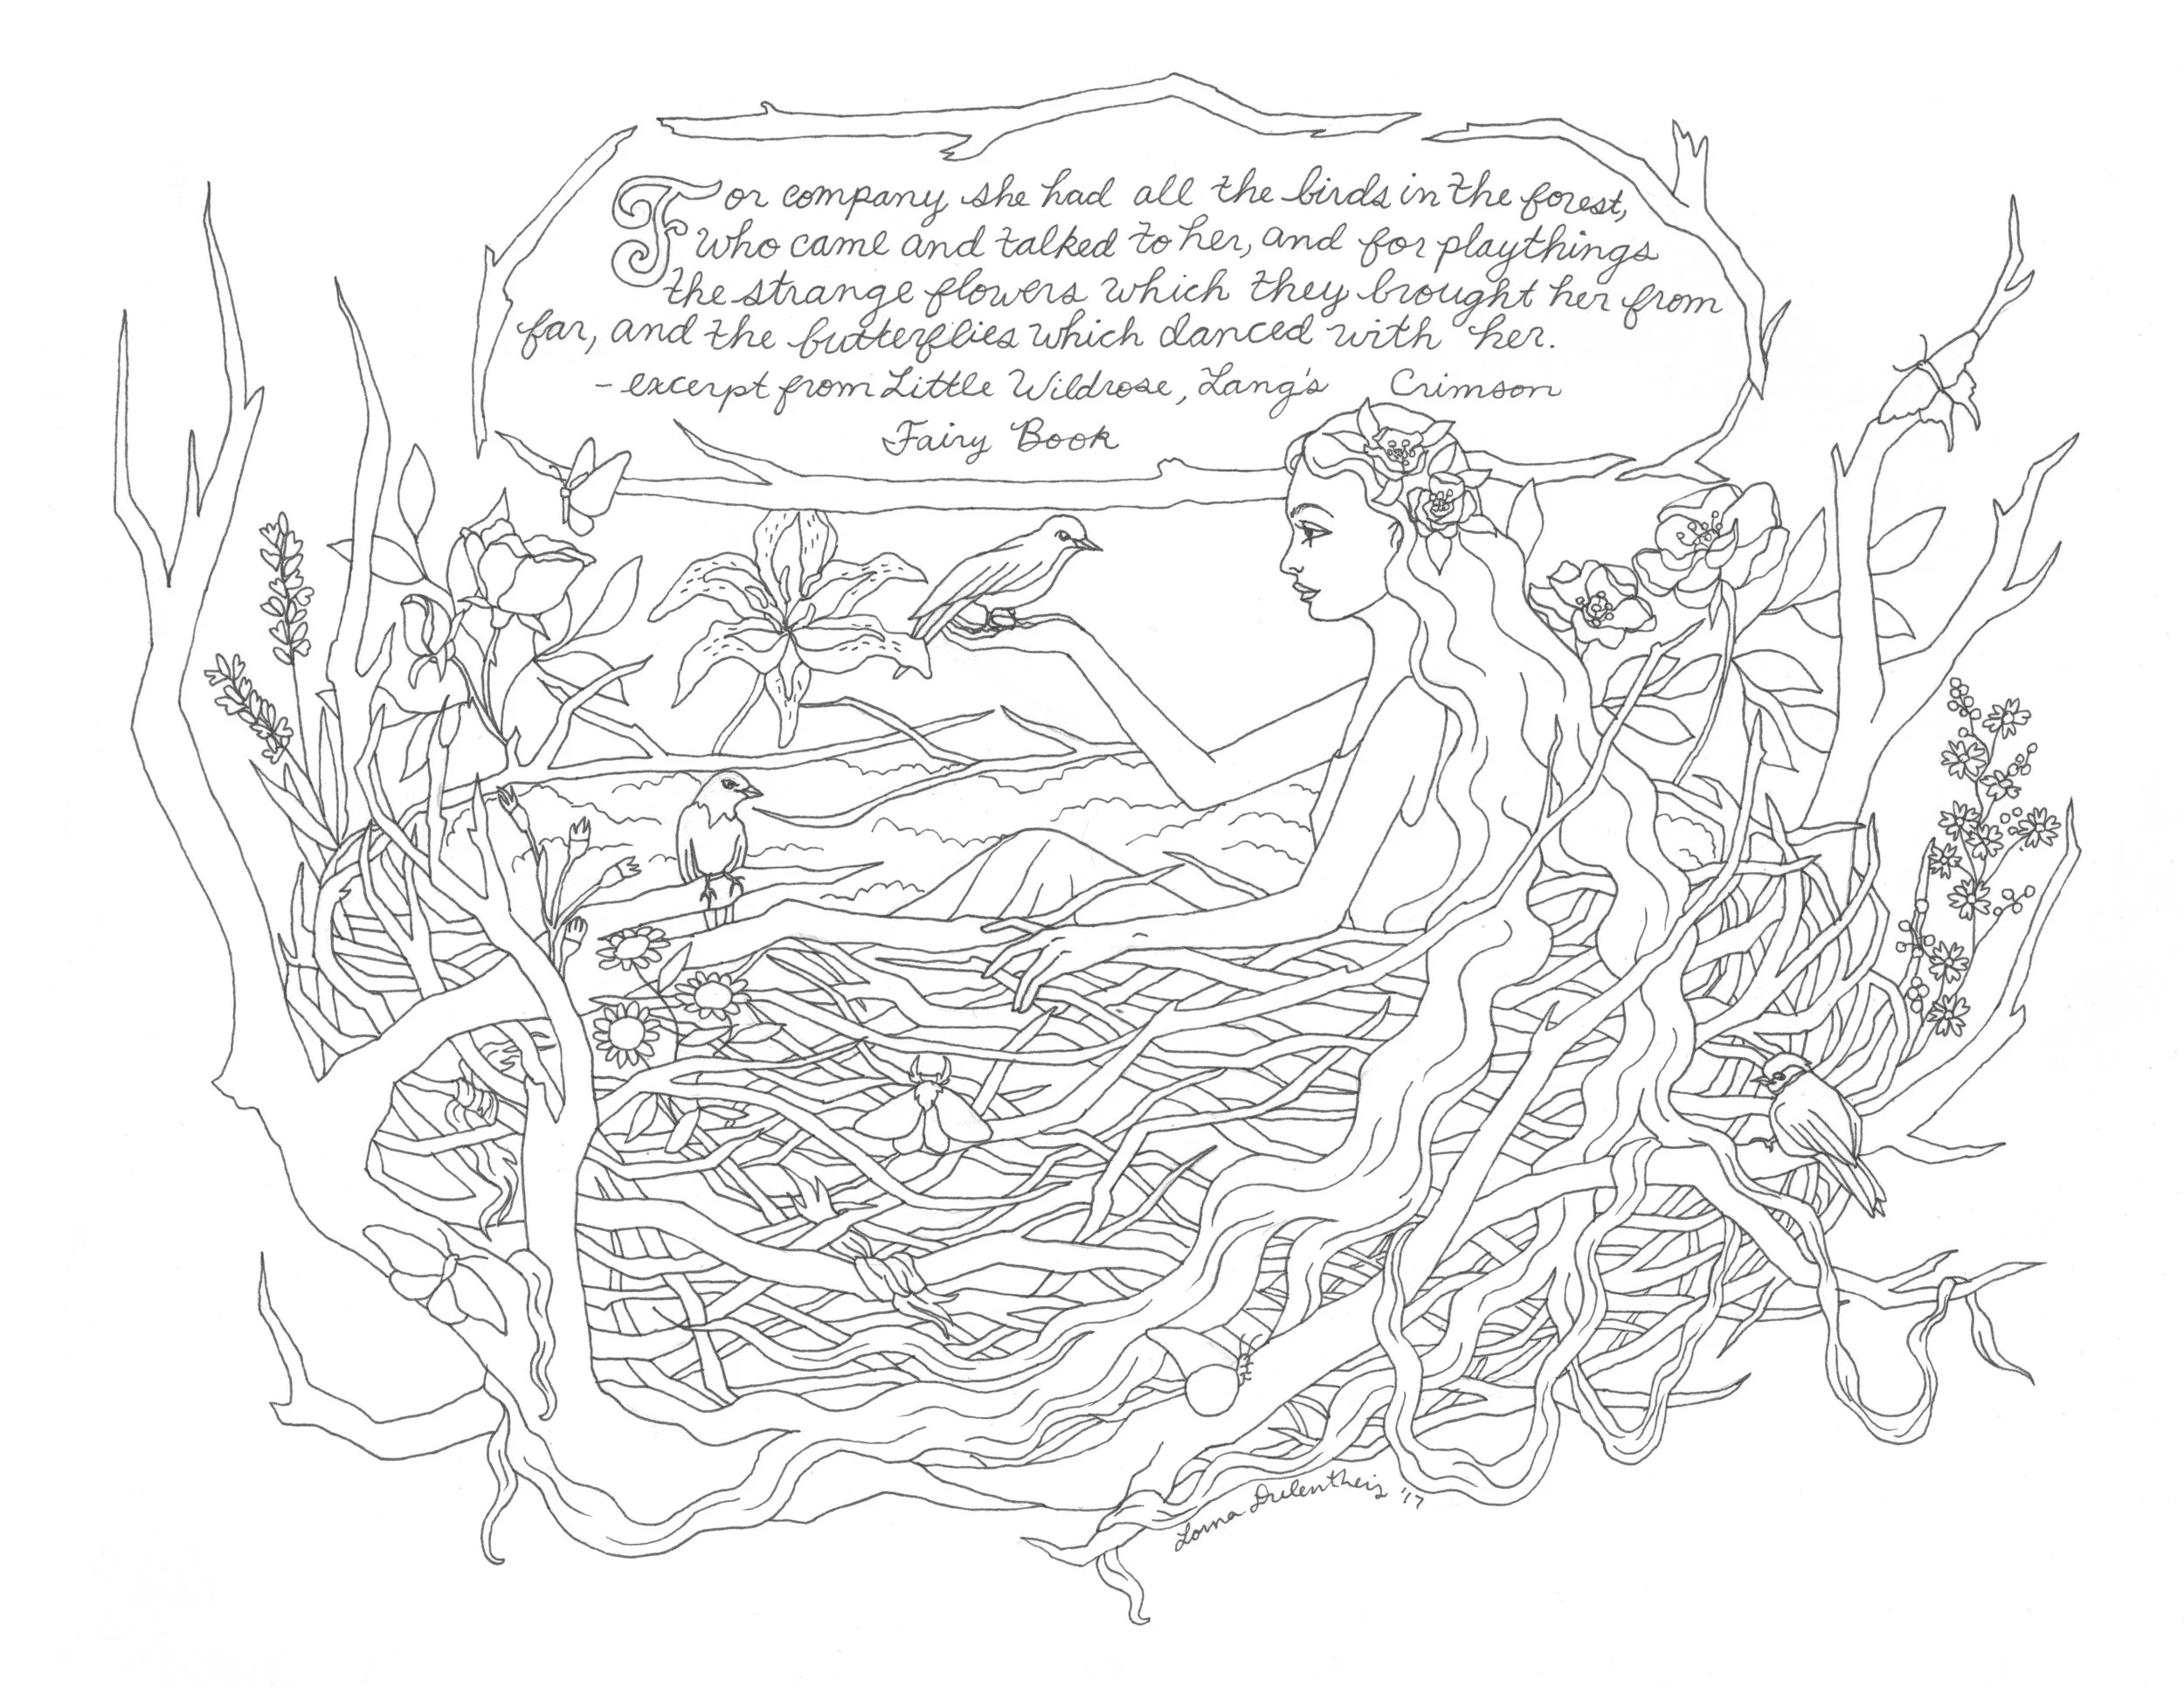 For company she had all the birds in the forest,
who came and talked to her, and for playthings
the strange flowers which they brought her from
far, and the butterflies which danced with her.
- excerpt from Little Wildrose, Lang's Crimson
Fairy Book
Lorna Drlentheiz '17